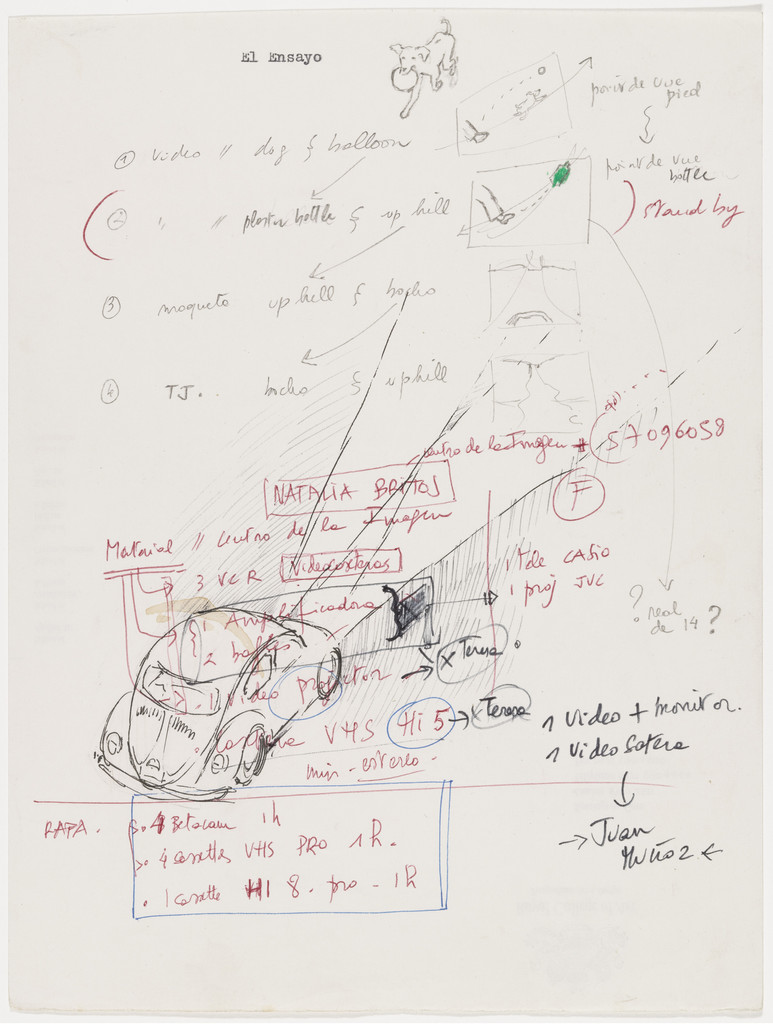 El Ensayo
point de vue
pied
① video // dog & balloon
point de vue
bottle
② " // plastic bottle & up hill
stand by
③ maqueta up hill & bocho
④ TJ.. bocho & uphill
centro de la Imagen # 57096058
NATALIA BRITOS
F
Material // Centro de la Imagen
3 VCR Videocaseteras
1 proj JVC
1 Amplificadora
? real
de 14 ?
2 bafles
x Teresa
1 video projector
casetera VHS Hi 5 → x Teresa
1 Video + monitor.
1 Video
estereo
RAPA. 4 Betacam 1h
4 casettes VHS PRO 1h.
→ Juan
Muñoz ←
1 casette HI 8. pro - 1h